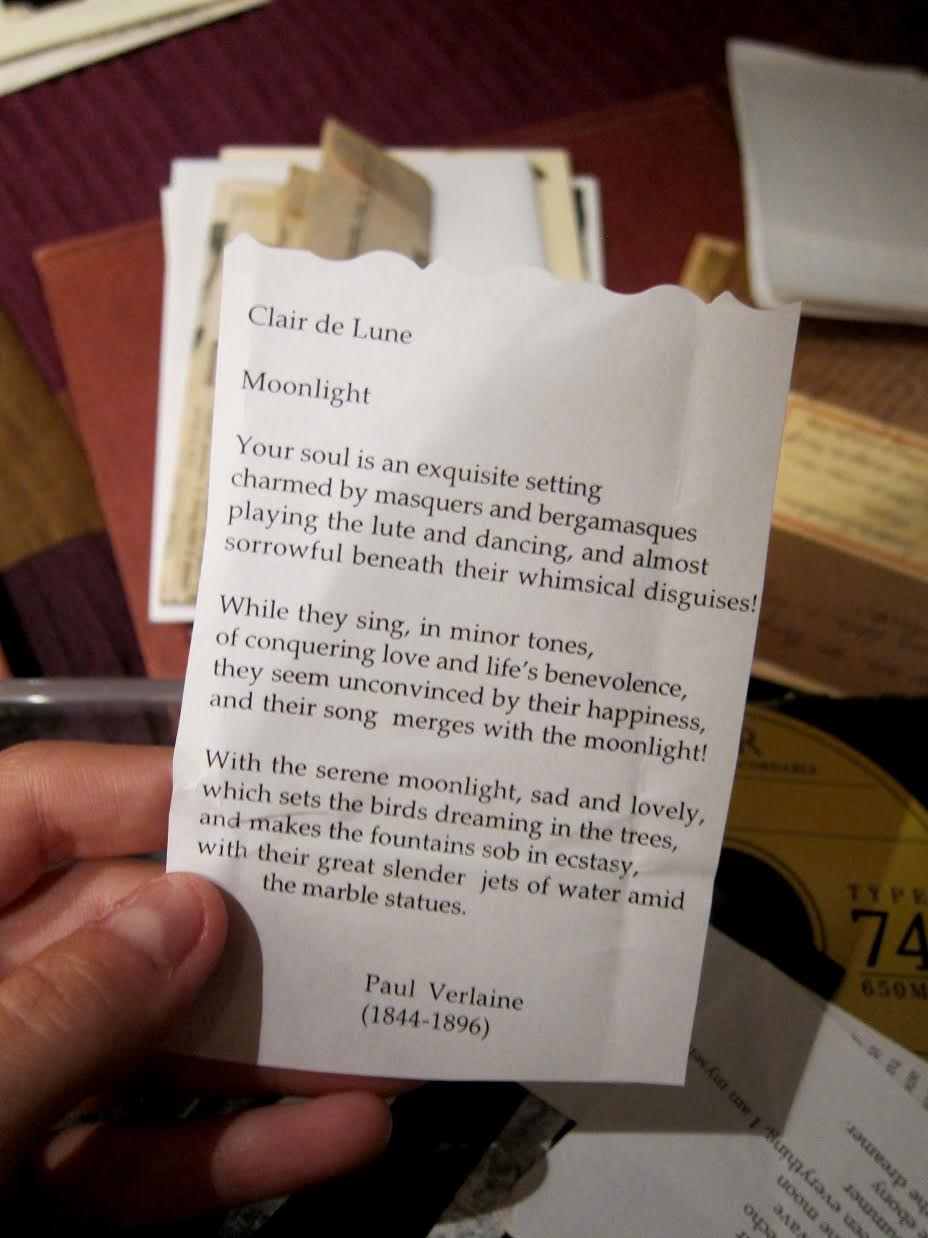 Clair de Lune
Moonlight
Your soul is an exquisite setting
charmed by masquers and bergamasques
playing the lute and dancing, and almost
sorrowful beneath their whimsical disguises!
While they sing, in minor tones,
of conquering love and life's benevolence,
they seem unconvinced by their happiness,
and their song merges with the moonlight!
With the serene moonlight, sad and lovely,
which sets the birds dreaming in the trees,
and makes the fountains sob in ecstasy,
with their great slender jets of water amid
the marble statues.
Paul Verlaine
(1844-1896)
TYPE
74
650M
I am myse
een everything,
ummer
ebony
he dreamer.
moon
rave
echo